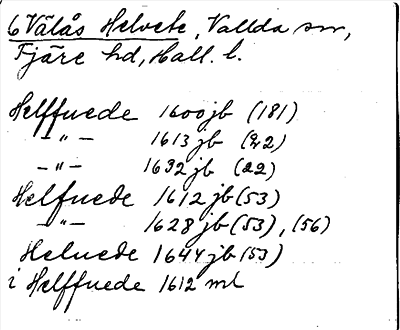 6 Vålås Helvete, Vallda sn,
Fjäre hd, Hall. l.
Helffuede 1600 jb (181)
– " – 1613 jb (22)
– " – 1632 jb (22)
Helfuede 1612 jb (53)
– " – 1628 jb (53), (56)
Heluede 1644 jb (53)
i Helffuede 1612 ml